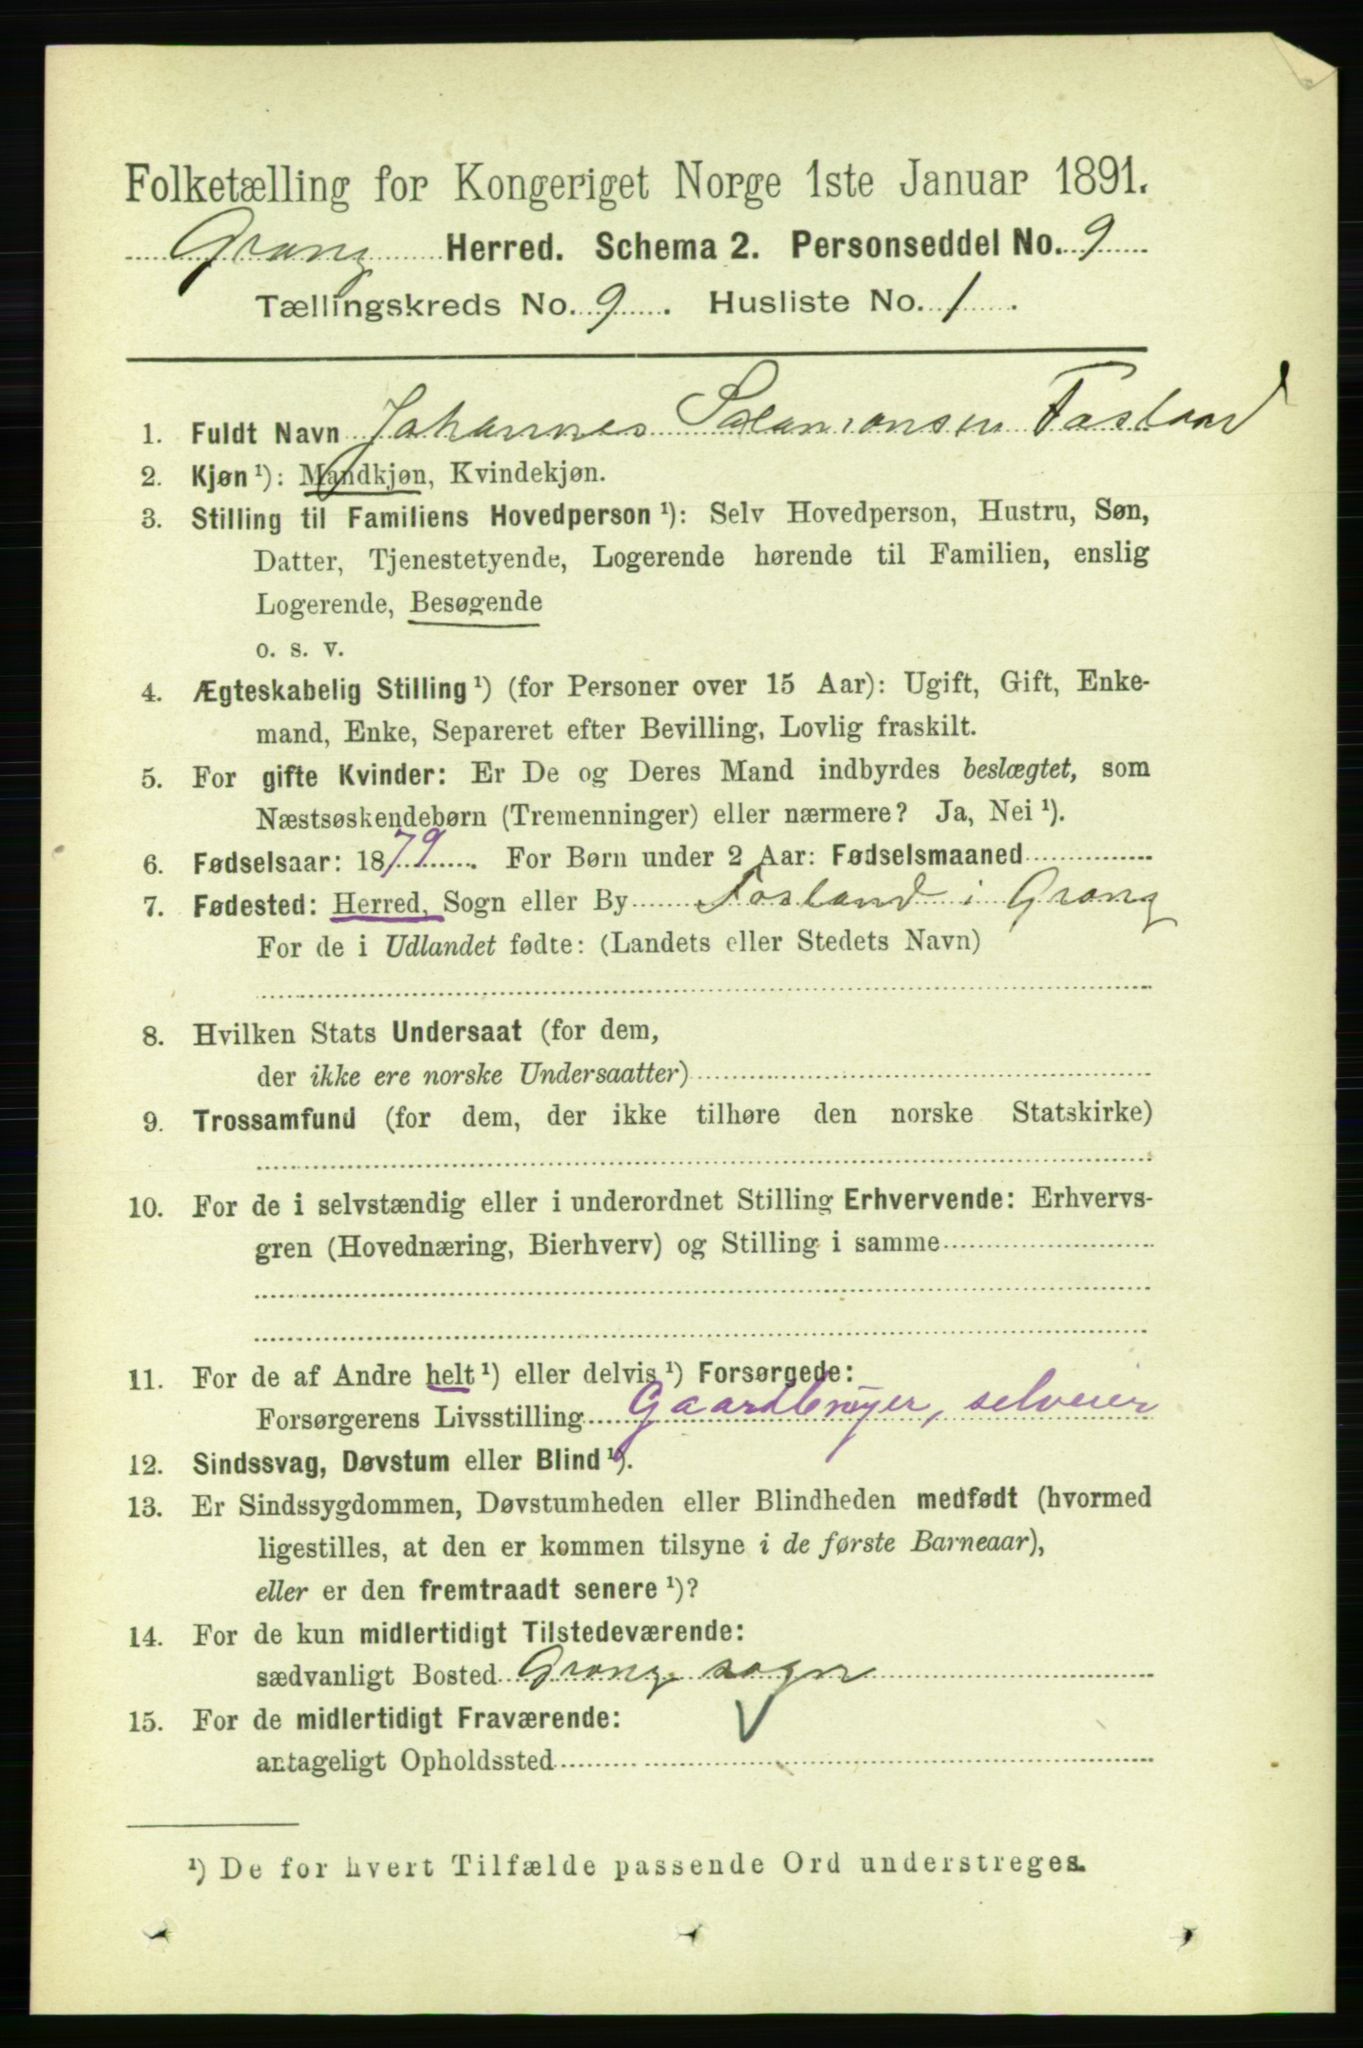 Folketælling for Kongeriget Norge 1ste Januar 1891.
Grong Herred. Schema 2. Personseddel No. 9
Tællingskreds No. 9. Husliste No. 1.
1. Fuldt Navn Johannes Salamonsen Fosland
2. Kjøn ¹): Mandkjøn, Kvindekjøn.
3. Stilling til Familiens Hovedperson ¹): Selv Hovedperson, Hustru, Søn,
Datter, Tjenestetyende, Logerende hørende til Familien, enslig
Logerende, Besøgende
o. s. v.
4. Ægteskabelig Stilling ¹) (for Personer over 15 Aar): Ugift, Gift, Enke-
mand, Enke, Separeret efter Bevilling, Lovlig fraskilt.
5. For gifte Kvinder: Er De og Deres Mand indbyrdes beslægtet, som
Næstsøskendebørn (Tremenninger) eller nærmere? Ja, Nei ¹).
6. Fødselsaar: 1879. For Børn under 2 Aar: Fødselsmaaned
7. Fødested: Herred, Sogn eller By Fosland i Grong
For de i Udlandet fødte: (Landets eller Stedets Navn)
8. Hvilken Stats Undersaat (for dem,
der ikke ere norske Undersaatter)
9. Trossamfund (for dem, der ikke tilhøre den norske Statskirke)
10. For de i selvstændig eller i underordnet Stilling Erhvervende: Erhvervs-
gren (Hovednæring, Bierhverv) og Stilling i samme
11. For de af Andre helt ¹) eller delvis ¹) Forsørgede:
Forsørgerens Livsstilling Gaardbruger, selveier
12. Sindssvag, Døvstum eller Blind ¹).
13. Er Sindssygdommen, Døvstumheden eller Blindheden medfødt (hvormed
ligestilles, at den er kommen tilsyne i de første Barneaar),
eller er den fremtraadt senere ¹)?
14. For de kun midlertidigt Tilstedeværende:
sædvanligt Bosted Grong sogn
15. For de midlertidigt Fraværende:
antageligt Opholdssted
¹) De for hvert Tilfælde passende Ord understreges.